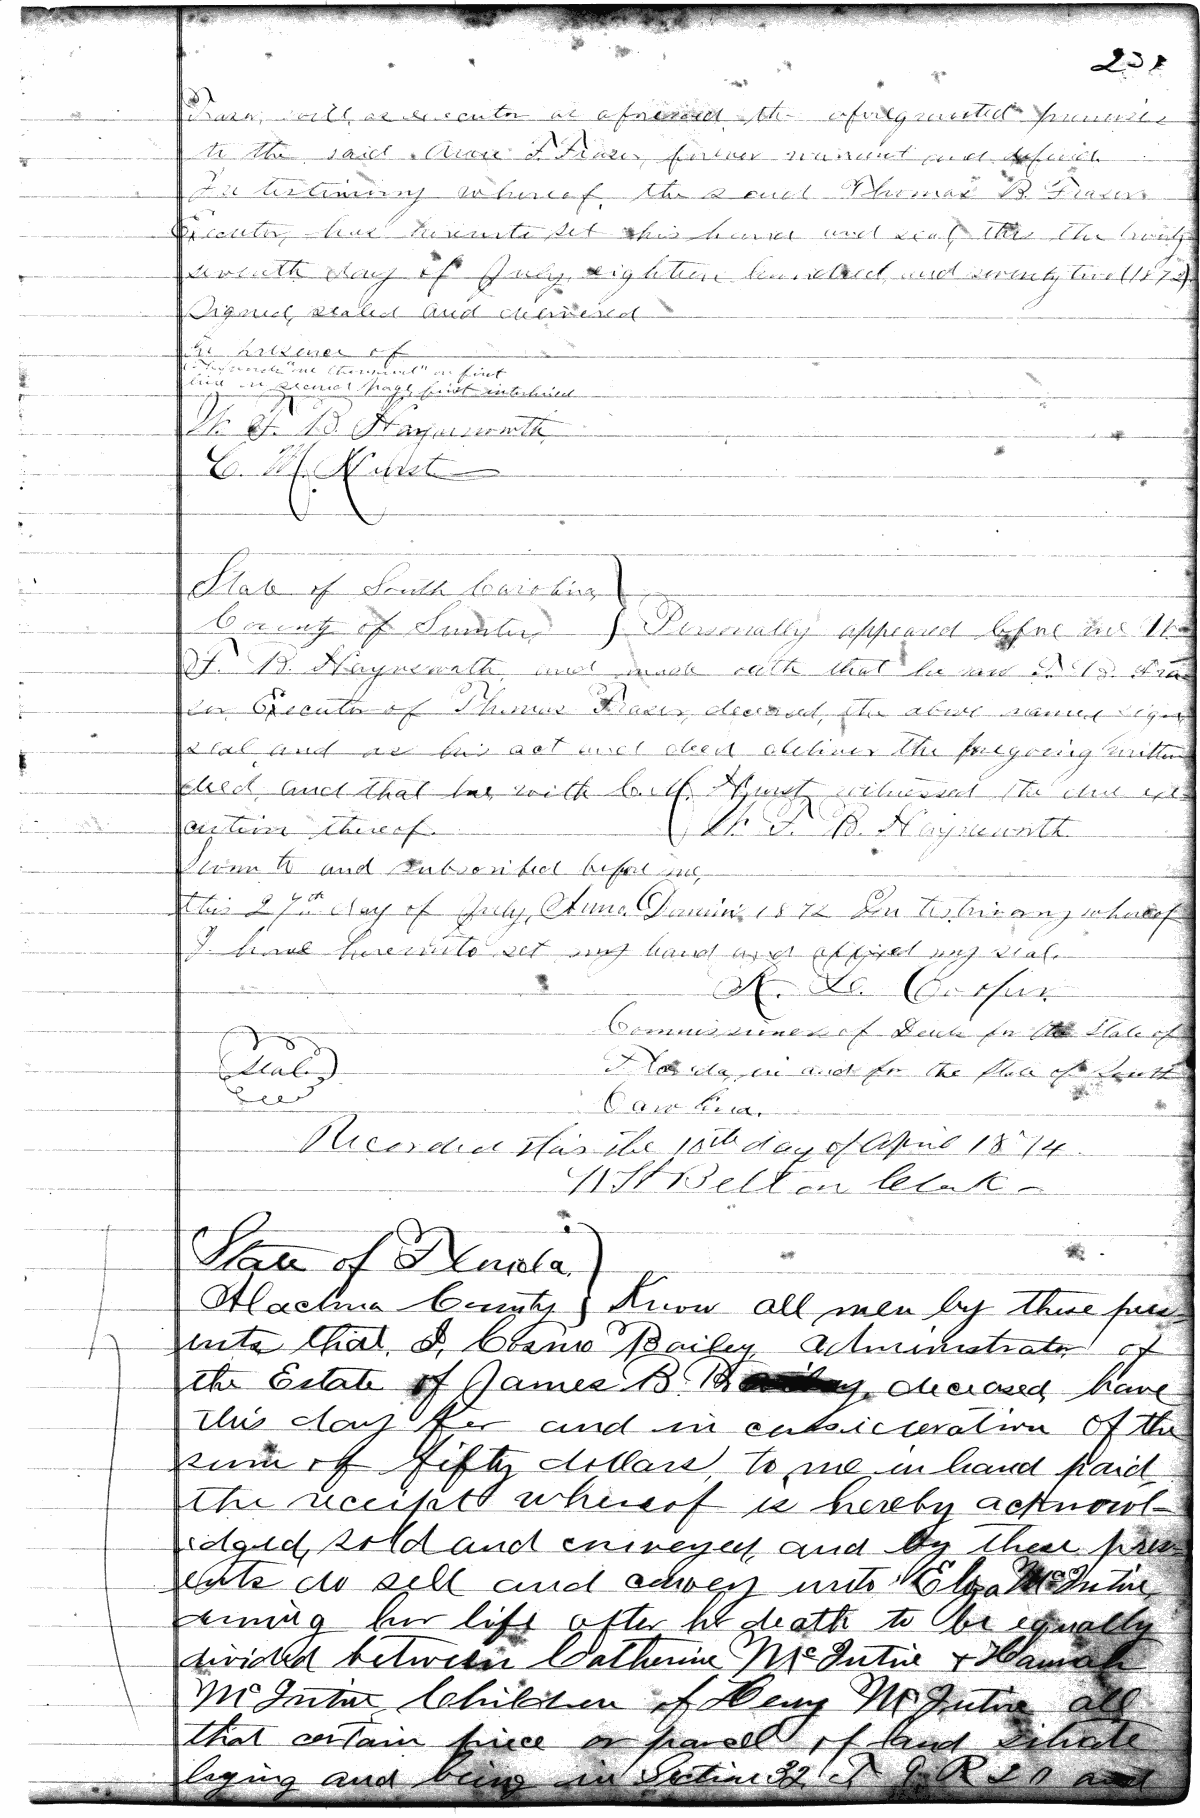 Fraser, will, as executor as aforesaid, the aforegranted premises
to the said F. Fraser, forever warrant and defend.
In testimony whereof, the said Thomas B. Fraser
Executor, has hereunto set his hand and seal, this the twenty
seventh day of July, eighteen hundred and seventy two (1872)
Signed, sealed and delivered
In presence of
on first
line on second page first interlined
W. F. B. Haynsworth
C. M. Hurst
State of South Carolina
County of Sumter, Personally appeared before me W.
F. B. Haynsworth, and made oath that he saw T. B. Fra-
ser Executor of Thomas Fraser, deceased, the above named sign,
seal, and as his act and deed deliver the foregoing written
deed, and that he, with C. M. Hurst witnessed the due ex-
ecution thereof. W. F. B. Haynsworth
Sworn to and subscribed before me,
this 27th day of July, Anno Domini 1872 In testimony whereof
I have hereunto set my hand and affixed my seal.
Cooper
Seal
Commissioner of Deeds for the State of
Florida, in and for the State of South
Carolina.
Recorded this the 10th day of April 1874
Belton Clerk
State of Florida
Alachua County Know all men by these pres-
ents that, I, Cosmo Bailey, Administrator of
the Estate of James B. deceased, have
this day for and in consideration of the
sum of fifty dollars, to me in hand paid,
the receipt whereof is hereby acknowl-
edged, sold and conveyed, and by these pres-
ents do sell and convey unto Eliza McIntire,
during her life after her death to be equally
divided between Catherine McIntire & Hannah
McIntire, Children of Henry McIntire all
that certain piece or parcel of land situate
lying and being in Section 32 T 9 R 20 and